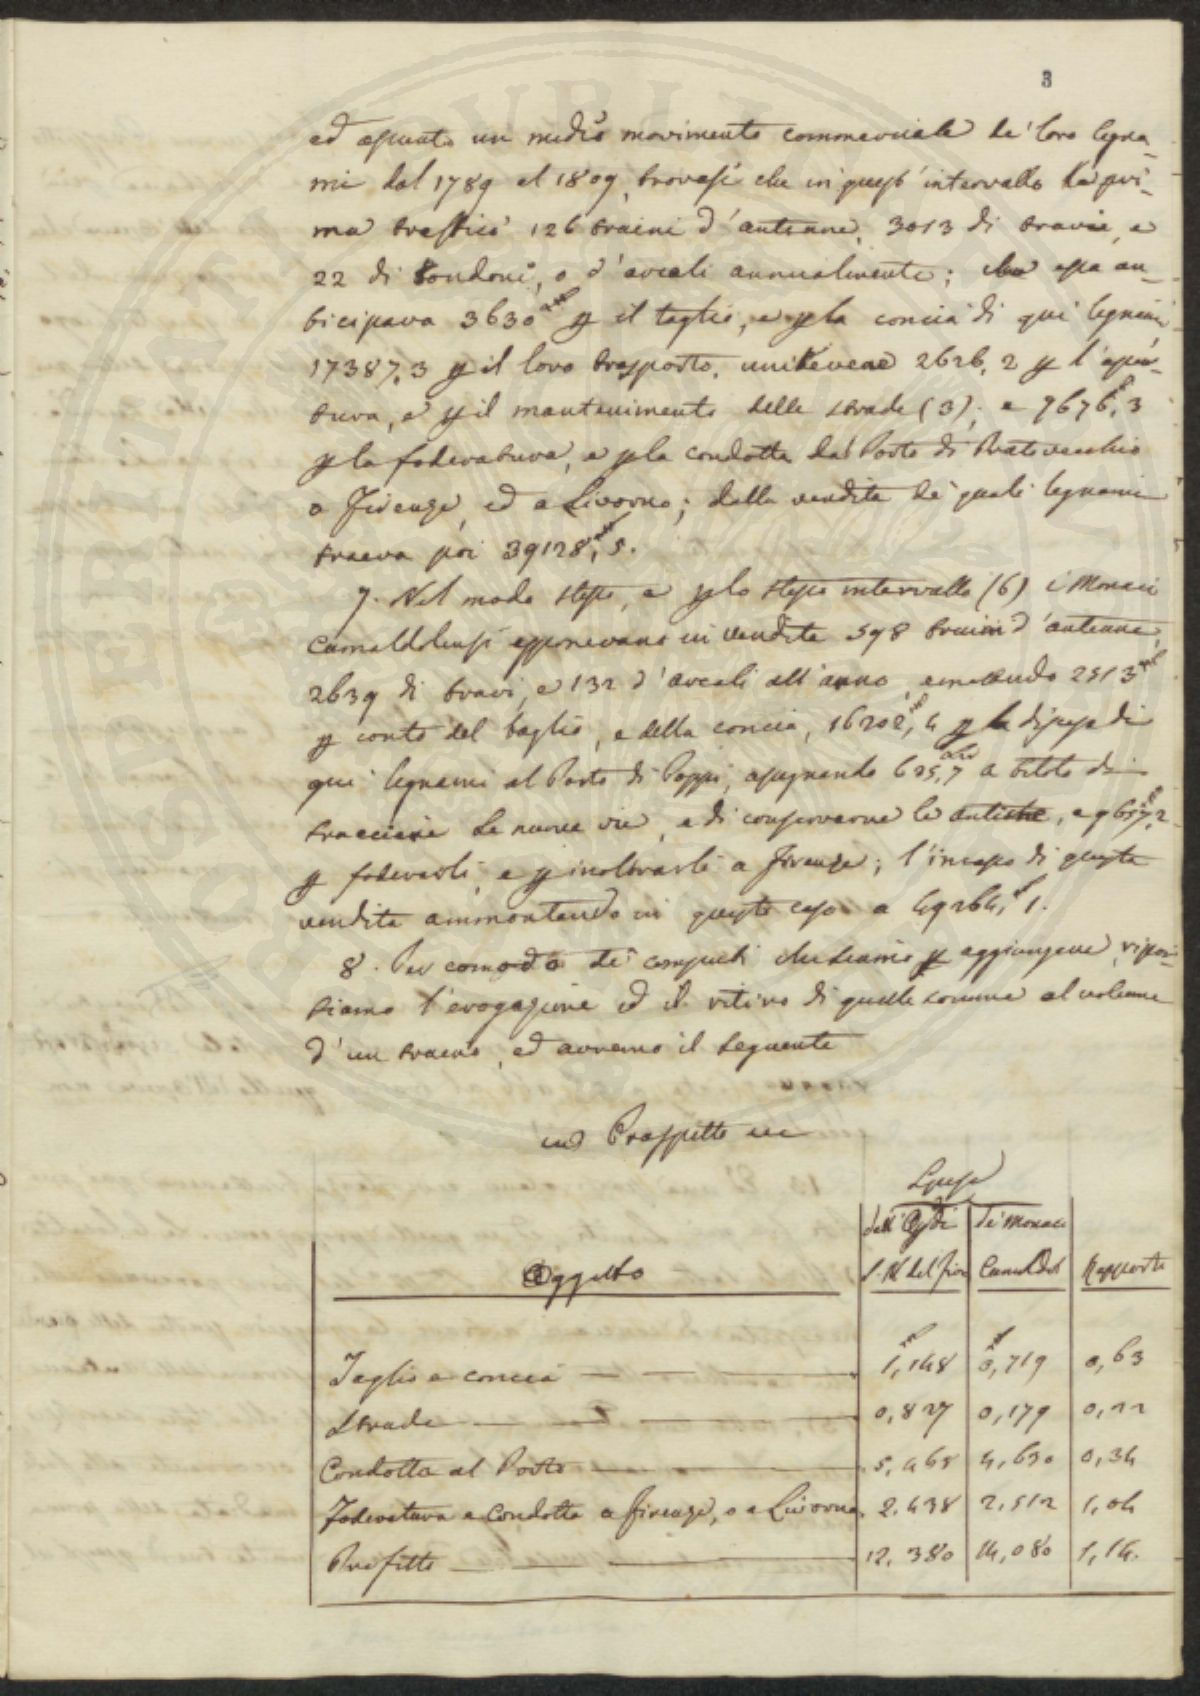 3
ed assunto un medio movimento commerciale de' loro legna-
mi dal 1789 al 1809, trovasi che in quest' intervallo la pri-
ma trafficò 126 traini d'antenne, 3013 di travi, e
22 di tondoni, o d'arcali annualmente; che essa an-
ticipava 3630 p il taglio, e p la concia di quei legnami
17387,3 p il loro trasporto, 2626,2 p l'aper-
tura, e p il mantenimento delle strade (3); e 7676,3
p la foderatura, e p la condotta dal Porto di Pratovecchio
a Firenze, ed a Livorno; dalla vendita de' quali legnami
traeva poi 39128,5.
7. Nel modo stesso, e p lo stesso intervallo (6) i Monaci
Camaldolensi esponevano in vendita 598 traini d'antenne,
2639 di travi, e 132 d'arcali all'anno, 2513
p conto del taglio, e della concia, 16202,4 p la discesa di
quei legnami al Porto di Poppi, assegnando 625,7 a titolo di
tracciare le nuove vie, e di conservarne le antiche, e 9657,2
p foderarli, e p inoltrarli a Firenze; l'incasso di questa
vendita ammontando in questo caso a 49264,1.
8. Per comodo de' computi che siamo p aggiungere, ripor-
tiamo l'erogazione ed il ritiro di quelle somme al volume
d'un traino, ed avremo il seguente
Prospetto
Spesa
dell' Op. di de' Monaci
Oggetto S. M. del Fiore Camald. Rapporto
Taglio e concia 1,148 0,719 0,63
Strade 0,827 0,179 0,22
Condotta al Porto 5,465 4,630 0,34
Foderatura e Condotta a Firenze, o a Livorno 2,438 2,512 1,04
Profitto 12,380 14,080 1,14.